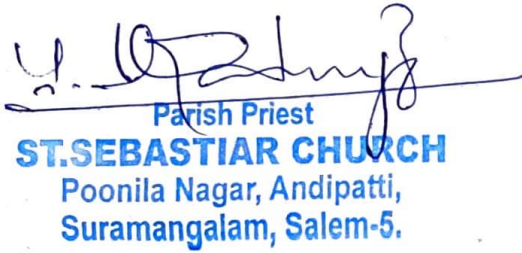 Parish Priest
ST.SEBASTIAR CHURCH
Poonila Nagar, Andipatti,
Suramangalam, Salem-5.